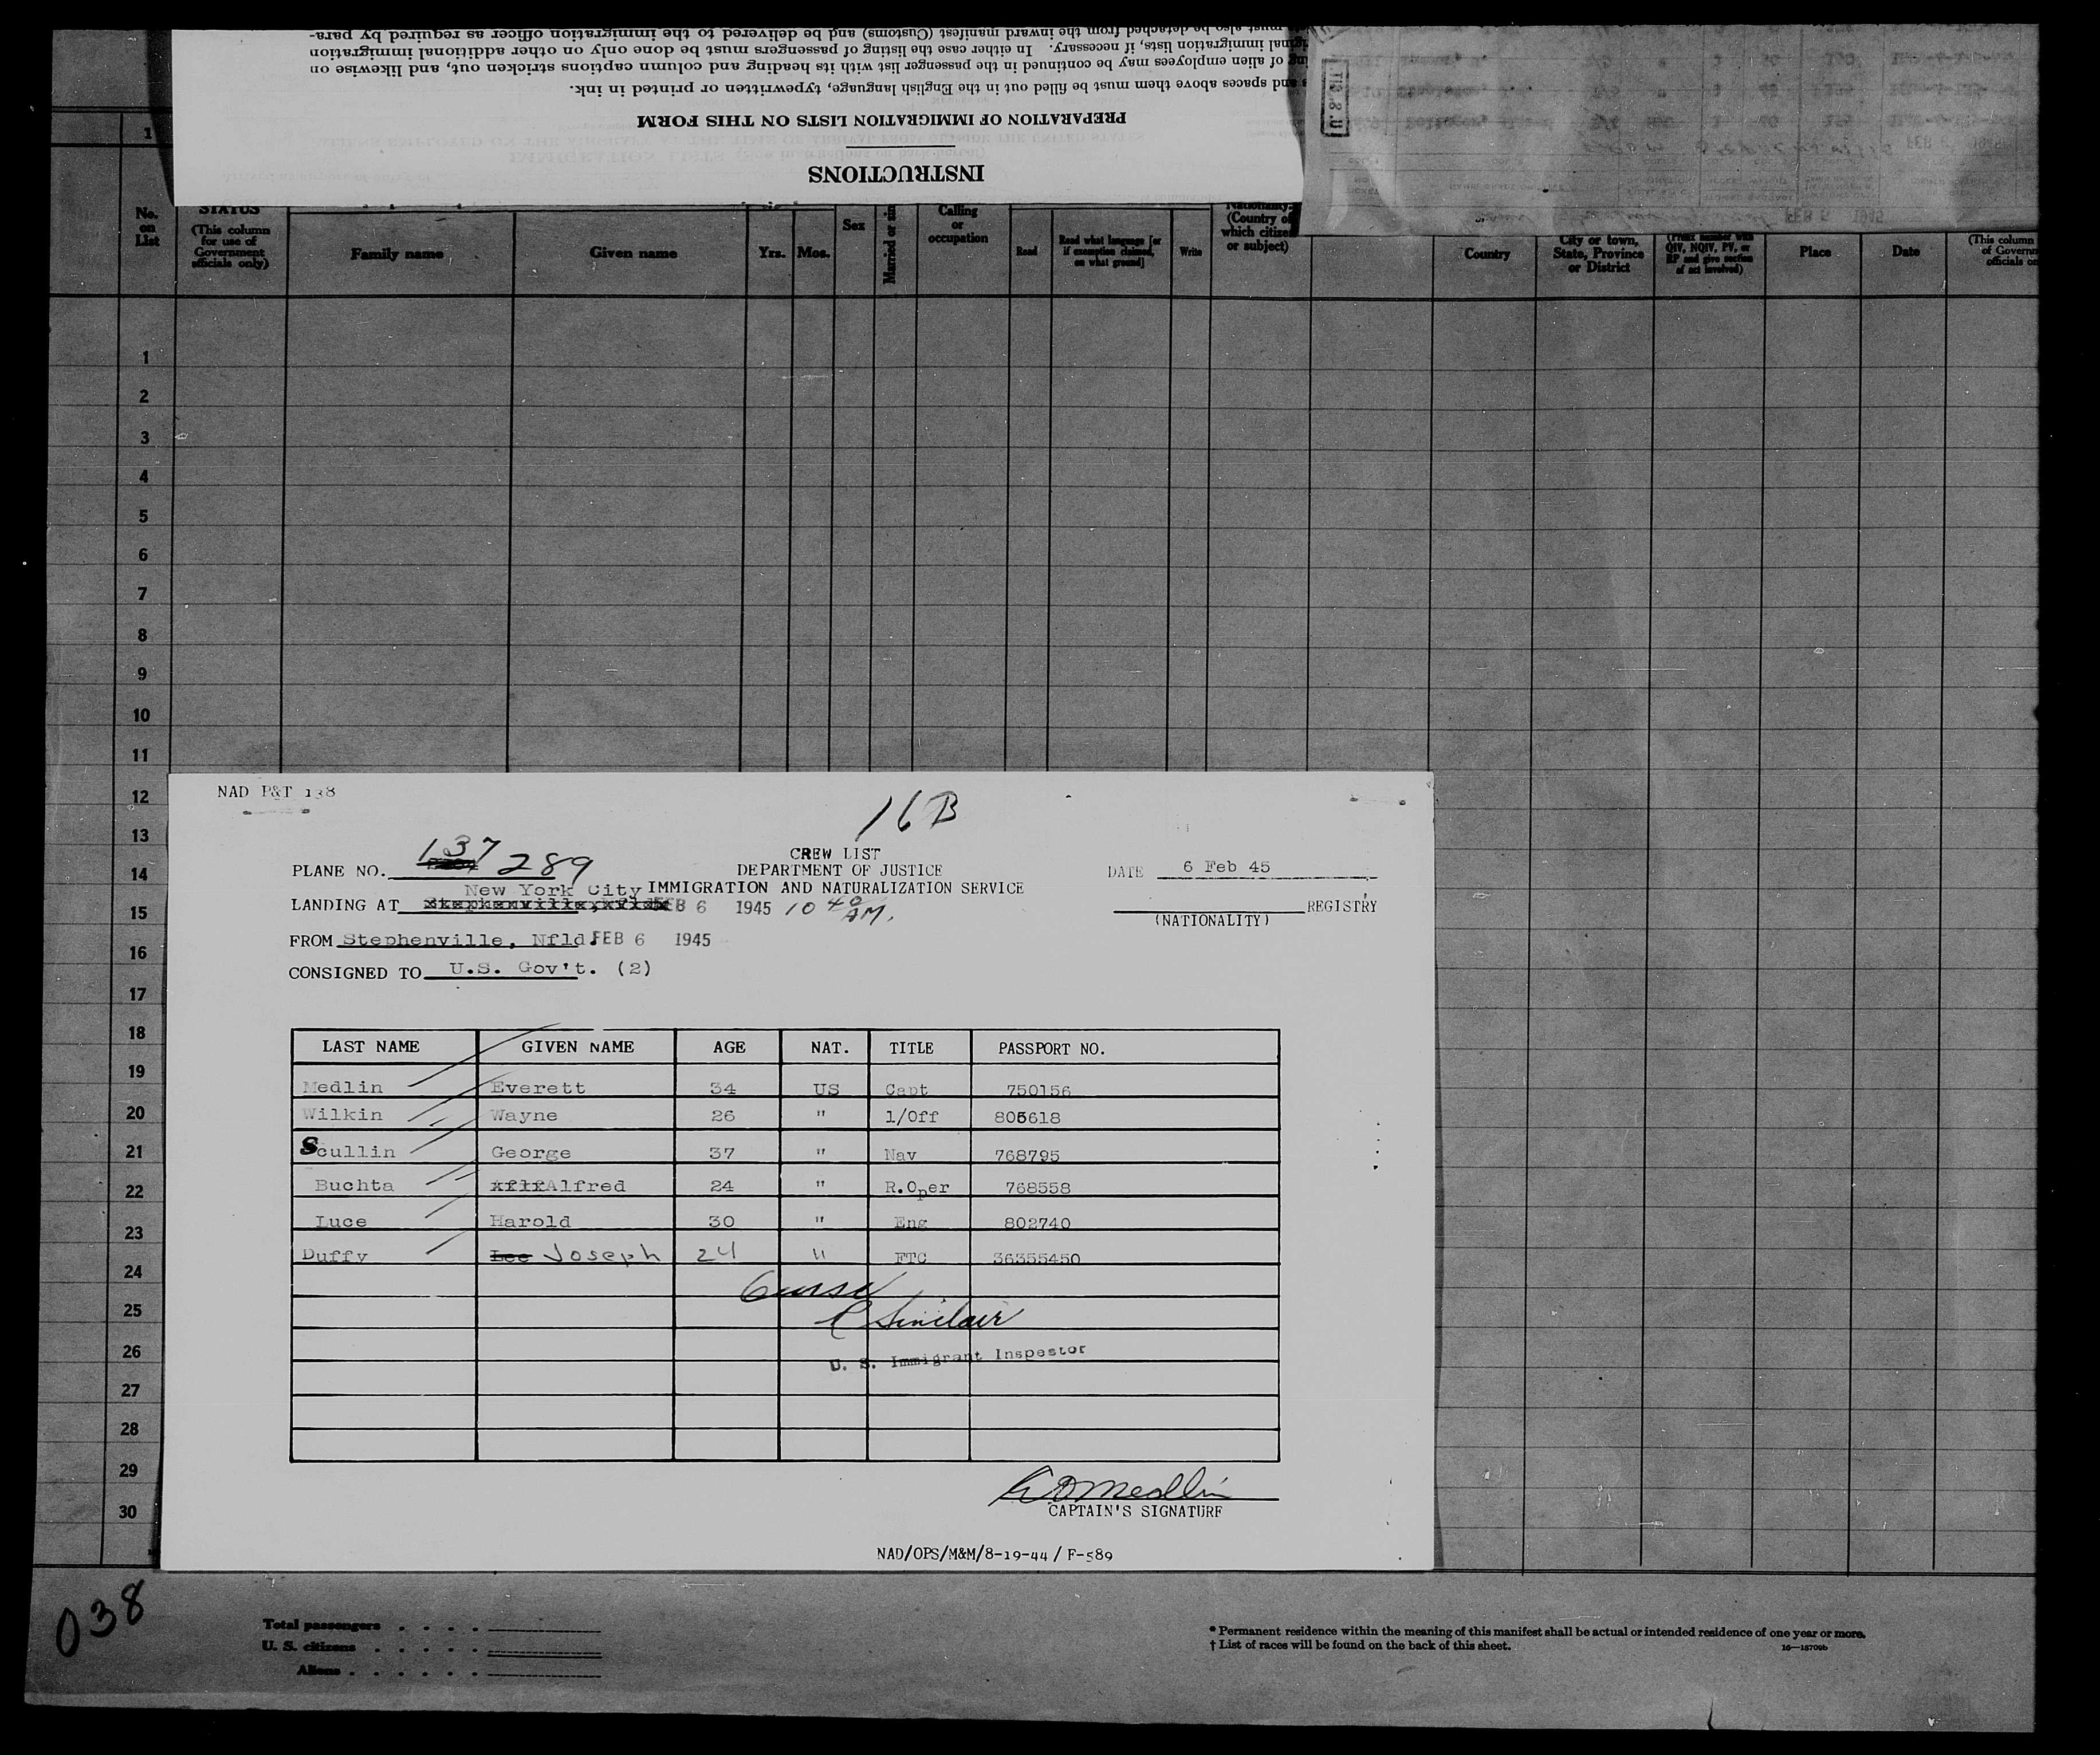 must also be detached from the inward manifest (Customs) and be delivered to the immigration officer as required by para-
immigration lists, if necessary. In either case the listing of passengers must be done only on other additional immigration
of alien employees may be continued in the passenger list with its heading and column captions stricken out, and likewise on
and spaces above them must be filled out in the English language, typewritten or printed in ink.
PREPARATION OF IMMIGRATION LISTS ON THIS FORM
INSTRUCTIONS
1
No. on List
STATUS (This column for use of Government officials only)
Family name
Given name
Yrs.
Mos.
Sex
Married or
Calling or occupation
Read
Read what language [or if exemption claimed, on what ground]
Write
(Country of which citizen or subject)
Country
City or town, State, Province or District
QIV, NQIV, PV, or RP and give section of act involved)
Place
Date
(This column
officials
FEB 6 1945
1
2
3
4
5
6
7
8
9
10
11
12
13
14
15
16
17
18
19
20
21
22
23
24
25
26
27
28
29
30
NAD P&T 138
16 B
CREW LIST
DEPARTMENT OF JUSTICE
IMMIGRATION AND NATURALIZATION SERVICE
PLANE NO. 137 289
DATE 6 Feb 45
New York City
LANDING AT Stephenville, Nfld FEB 6 1945 10 40 AM.
REGISTRY
(NATIONALITY)
FROM Stephenville, Nfld. FEB 6 1945
CONSIGNED TO U.S. Gov't. (2)
LAST NAME GIVEN NAME AGE NAT. TITLE PASSPORT NO.
Medlin Everett 34 US Capt 750156
Wilkin Wayne 26 " 1/Off 805618
Scullin George 37 " Nav 768795
Buchta Alfred 24 " R.Oper 768558
Luce Harold 30 " Eng 802740
Duffy Lee Joseph 24 " FTC 36355450
Sinclair
U. S. Immigrant Inspector
Medlin
CAPTAIN'S SIGNATURE
NAD/OPS/M&M/8-19-44 / F-589
038
Total passengers
U. S. citizens
Aliens
* Permanent residence within the meaning of this manifest shall be actual or intended residence of one year or more.
† List of races will be found on the back of this sheet.
16—18709b